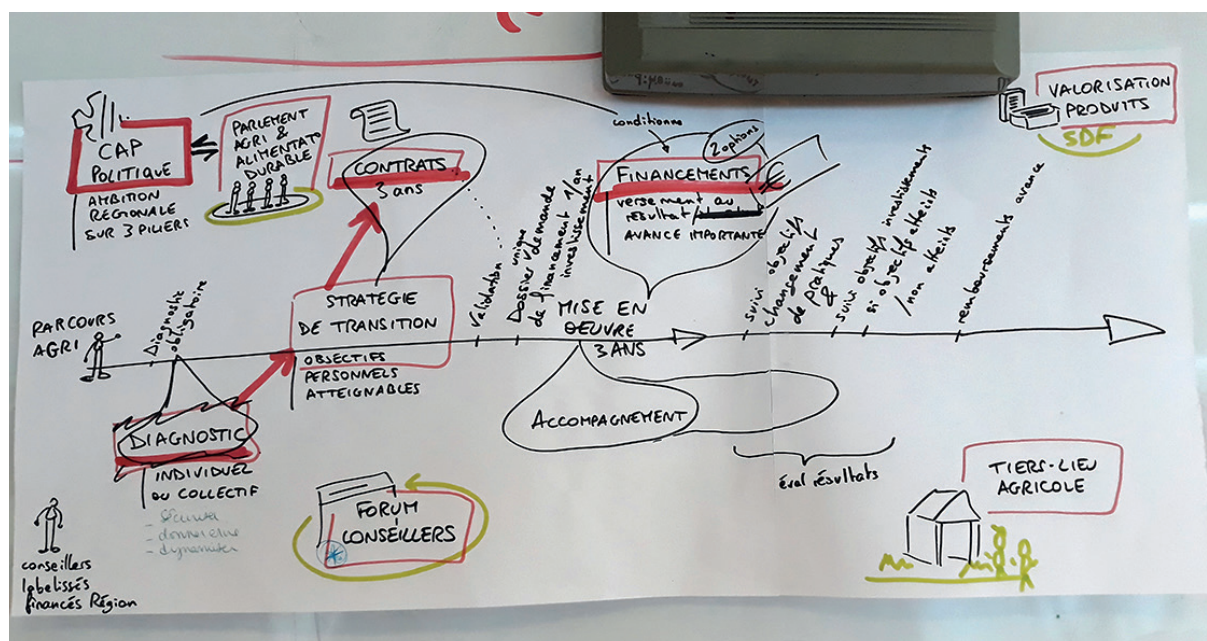 CAP
POLITIQUE
AMBITION
REGIONALE
SUR 3 PILIERS
PARLEMENT
AGRI &
ALIMENTATO
DURABLE
CONTRATS
3 ans
conditionne
2 options
FINANCEMENTS
€
versement au
résultat/
AVANCE IMPORTANTE
VALORISATION
PRODUITS
SDF
PARCOURS
AGRI
Diagnostic
obligatoire
STRATÉGIE
DE TRANSITION
OBJECTIFS
PERSONNELS
ATTEIGNABLES
Validation
Dossier unique
de demande
de financement 1/an
investissement
MISE EN
OEUVRE
3 ANS
suivi objectifs
changement
de pratiques
&
suivi objectifs investissements
si objectifs atteints
/non atteints
remboursements avance
DIAGNOSTIC
INDIVIDUEL
OU COLLECTIF
- sécurité
- dynamiser
ACCOMPAGNEMENT
éval résultats
FORUM
CONSEILLERS
TIERS-LIEU
AGRICOLE
conseillers
labelissés
financés Région